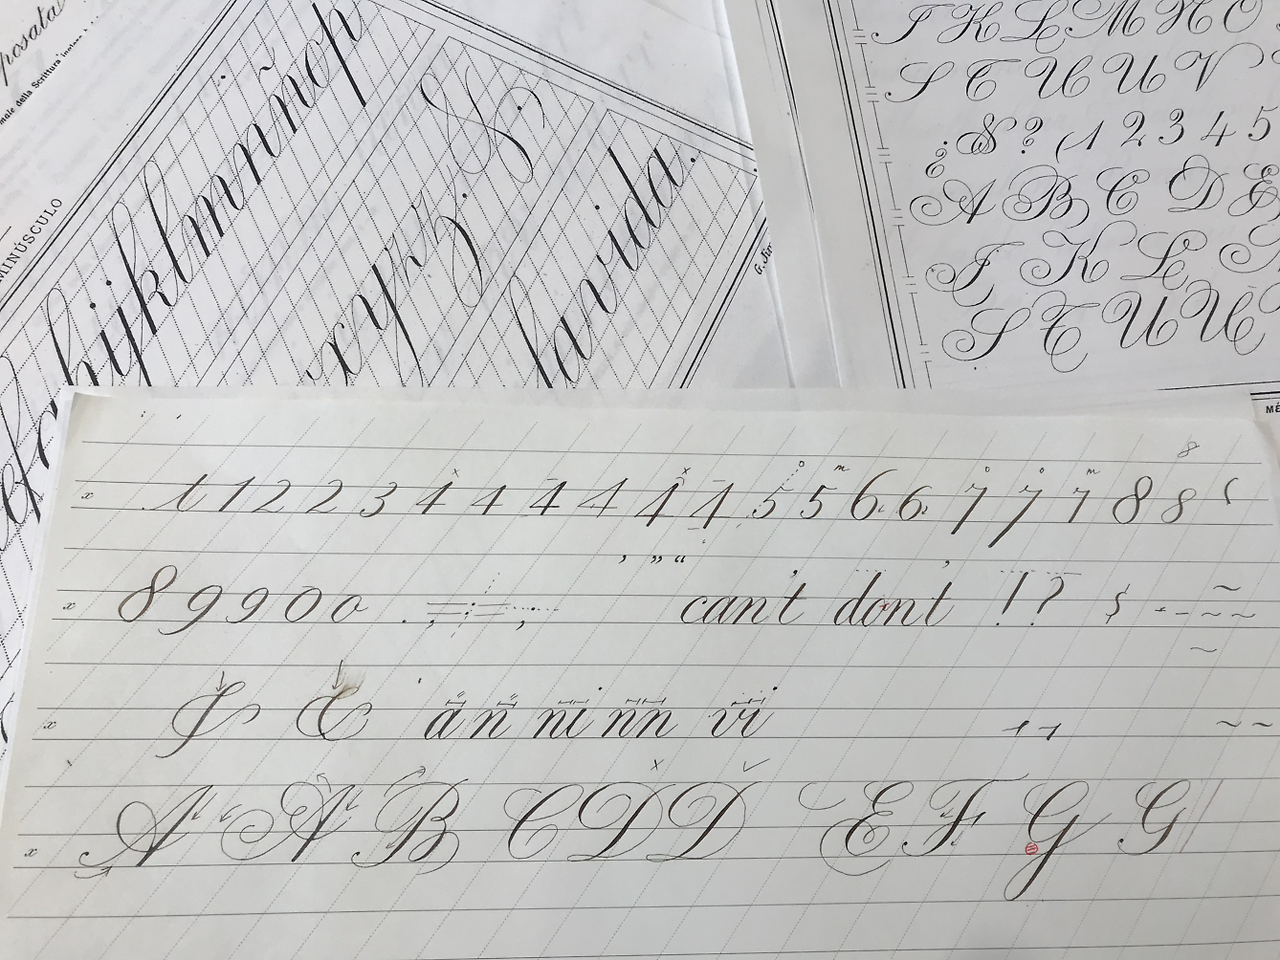 posata
male della Scrittura inglese
MINÚSCULO
hijklmnñop
xyzz.
la vida.
I K L M N O
S T U U V
¿ & ? 1 2 3 4 5
A B C D E
I K L
S T U U
x 1 1 2 2 3 4 4 4 4 4 4 5 5 6 6 7 7 7 8 8
, ” “
x 8 9 9 0 0 . ; : ; can't don't ! ? $ - - ~ ~
x I C an ni nn vi
x A A B C D D E F G G